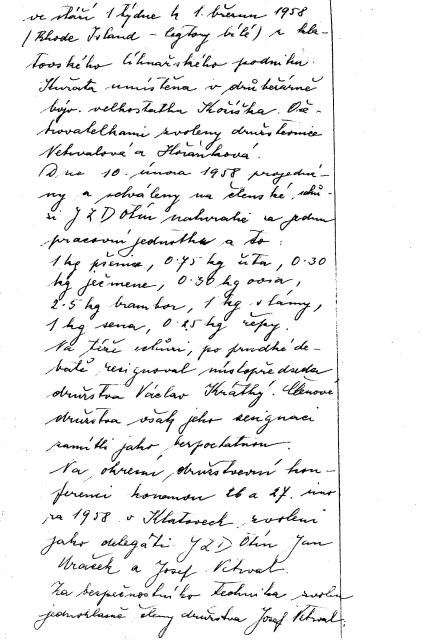 ve stáří 1 týdne k 1. březnu 1958
(Rhode Island - leghorn bílé) z kla-
tovského líhňařského podniku.
Kuřata umístěna v drůbežárně
býv. velkostatku Kořiška. Oše-
třovatelkami zvoleny družstevnice
Netvalová a Hořánková.
Dne 10. února 1958 projedná-
ny a schváleny na členské schů-
zi JZD Olín naturalie za jednu
pracovní jednotku a to:
1 kg pšenice, 0.75 kg žita, 0.30
kg ječmene, 0.30 kg ovsa,
2.5 kg brambor, 1 kg slámy,
1 kg sena, 0.25 kg řepy.
Na téže schůzi, po prudké de-
batě, resignoval místopředseda
družstva Václav Krátký. Členové
družstva však jeho resignaci
zamítli jako bezpodstatnou.
Na okresní družstevní kon-
ferenci konanou 26 a 27. úno-
ra 1958 v Klatovech zvoleni
jako delegáti JZD Olín Jan
a Josef Netval.
Za bezpečnostního technika zvolen
jednohlasně členy družstva Josef Netval.